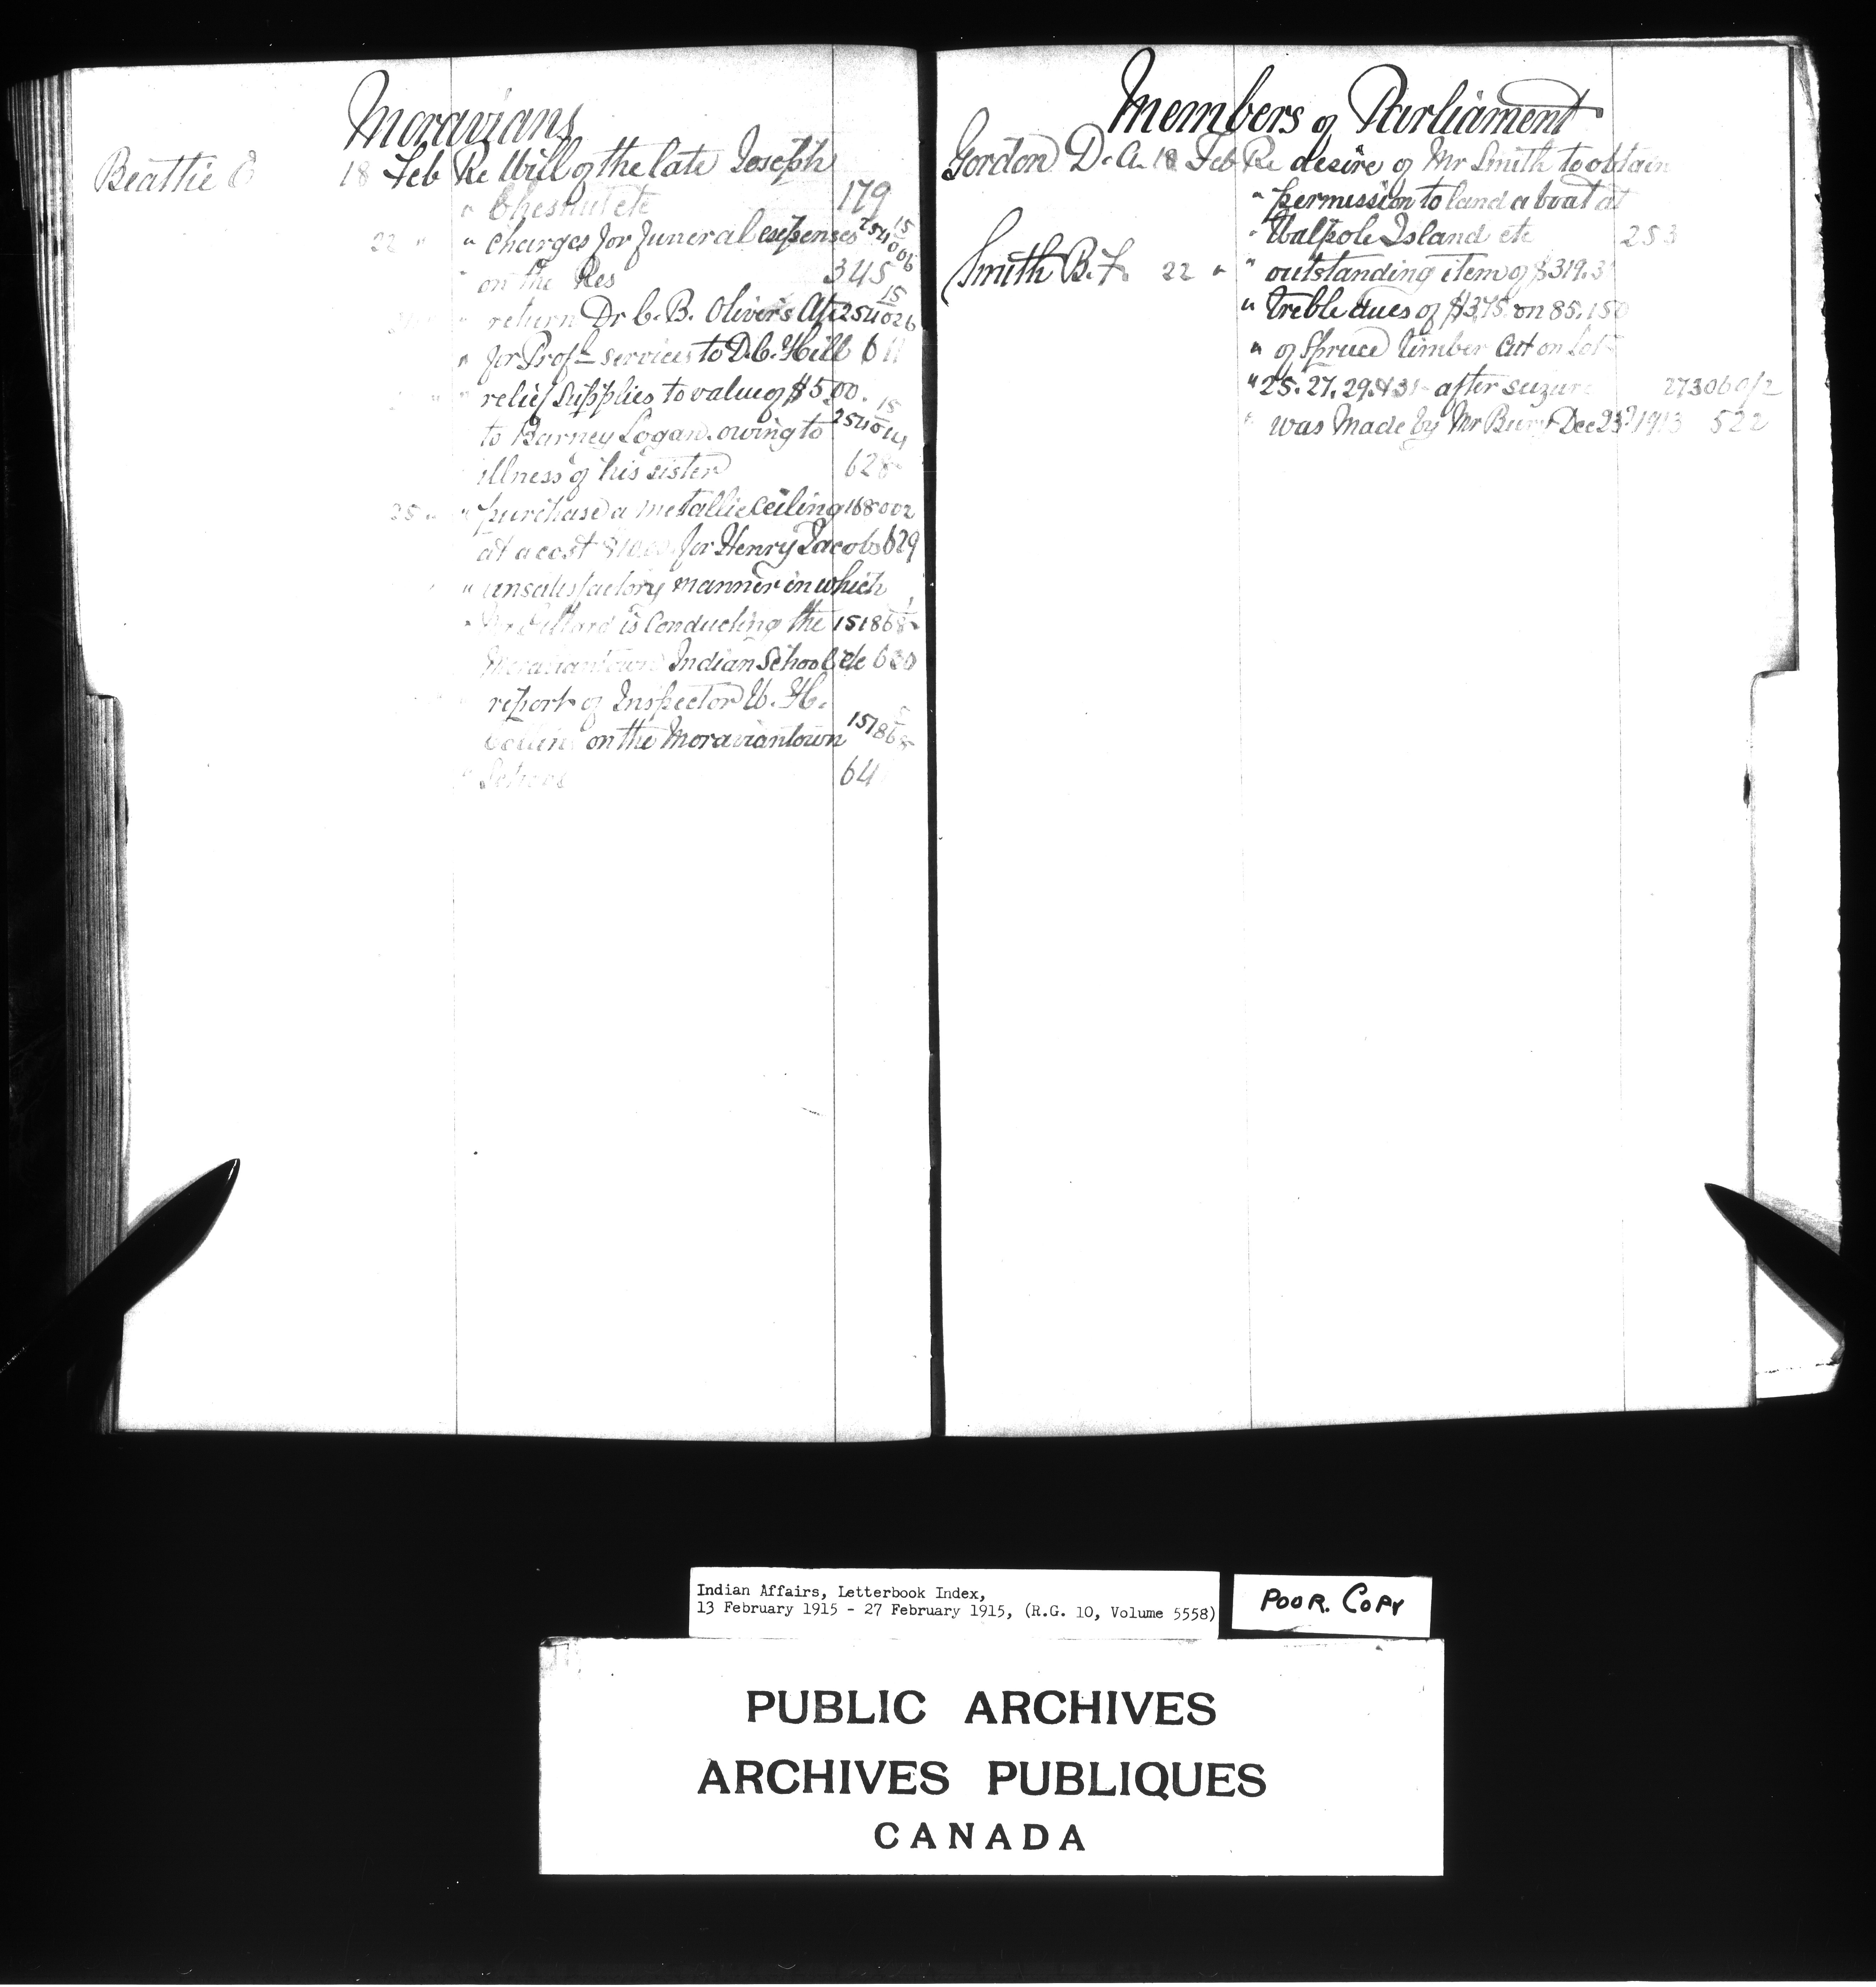 Moravians
Beattie 18 Feb Re Will of the late Joseph
" Cheshut etc 179
22 " " charges for funeral expenses 254006 15
on the Res 345
" return Dr C. B. Oliver's A/c 254026 15
" for Prof'l services to D.C. Hill 611
" relief supplies to value of $5.00
to Barney Logan owing to 254014 15
illness of his sister 628
25 " " purchase a metallic ceiling 168002
at a cost for Henry Jacobs 629
" unsatisfactory manner in which
is conducting the 151868
Moraviantown Indian School etc 630
report of Inspector W. H.
on the Moraviantown 151868
" School 64
Members of Parliament
Gordon D. A. 18 Feb Re desire of Mr Smith to obtain
" permission to land a boat at
" Walpole Island etc 253
Smith B. F. 22 " " outstanding item of $319.3
" treble dues of $3.75 on 85,150
" of Spruce timber cut on Lots
" 25. 27. 29. & 31 - after seizure 273060/2
" was made by Mr Dec 23rd 1913 522
Indian Affairs, Letterbook Index,
13 February 1915 - 27 February 1915, (R.G. 10, Volume 5558)
POOR. COPY
PUBLIC ARCHIVES
ARCHIVES PUBLIQUES
CANADA